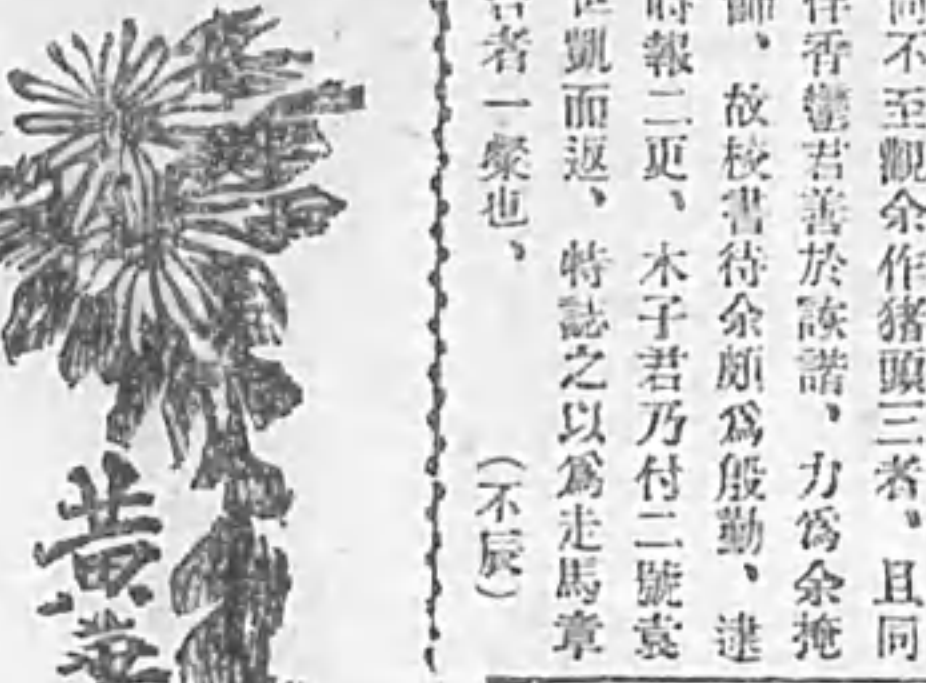 不至觀余作猪頭三者、且同
香鸞君善於詼諧、力爲余掩
、故校書待余頗爲殷勤、逮
報二更、木子君乃付二號袁
凱而返、特誌之以爲走馬章
者一粲也、
（不辰）
黃